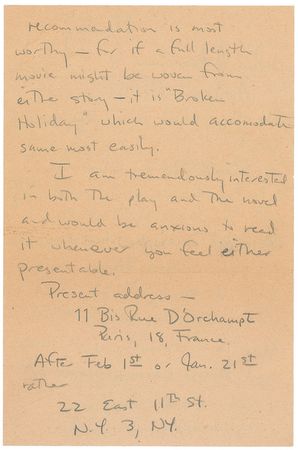 recommendation is most
worthy — for if a full length
movie might be woven from
eithe story — it is "Broken
Holiday" which would accomodate
same most easily.
I am tremendously interested
in both the play and the novel
and would be anxious to read
it whenever you feel either
presentable.
Present address —
11 Bis Rue D'Orchampt
Paris, 18, France.
After Feb 1st or Jan. 21st
rather
22 East 11th St.
N.Y. 3, N.Y.